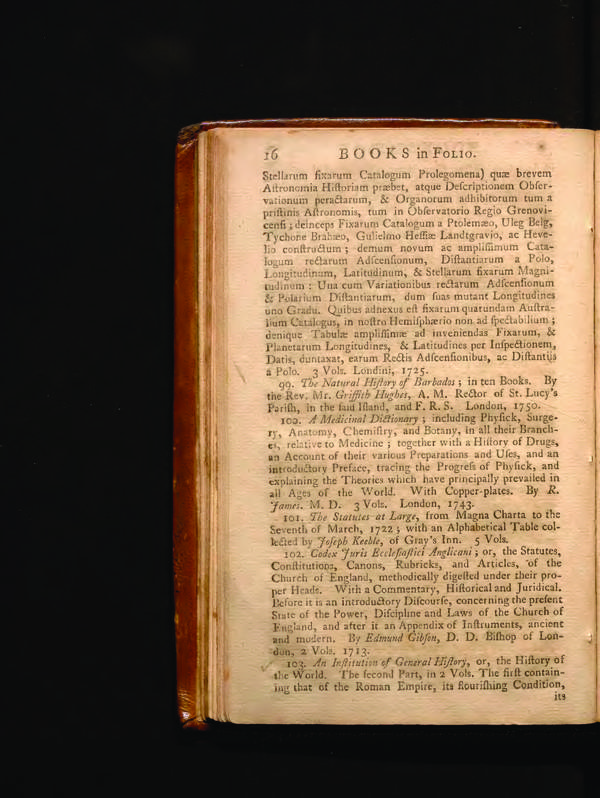 16 BOOKS in FOLIO.
Stellarum fixarum Catalogum Prolegomena) quæ brevem
Aſtronomia Hiſtoriam præbet, atque Deſcriptionem Obſer-
vationum peractarum, & Organorum adhibitorum tum a
priſtinis Aſtronomis, tum in Obſervatorio Regio Grenovi-
cenſi ; deinceps Fixarum Catalogum a Ptolemæo, Uleg Beig,
Tychone Brahæo, Gulielmo Heſſiæ Landtgravio, ac Heve-
lio conſtructum ; demum novum ac ampliſſimum Cata-
logum rectarum Adſcenſionum, Diſtantiarum a Polo,
Longitudinum, Latitudinum, & Stellarum fixarum Magni-
tudinum : Una cum Variationibus rectarum Adſcenſionum
& Polarium Diſtantiarum, dum ſuas mutant Longitudines
uno Gradu. Quibus adnexus eſt fixarum quarundam Auſtra-
lium Catalogus, in noſtro Hemiſphærio non ad ſpectabilium ;
denique Tabulæ ampliſſimæ ad inveniendas Fixarum, &
Planetarum Longitudines, & Latitudines per Inſpectionem,
Datis, duntaxat, earum Rectis Adſcenſionibus, ac Diſtantiis
a Polo. 3 Vols. Londini, 1725.
99. The Natural Hiſtory of Barbados ; in ten Books. By
the Rev. Mr. Griffith Hughes, A. M. Rector of St. Lucy's
Pariſh, in the ſaid Iſland, and F. R. S. London, 1750.
100. A Medicinal Dictionary ; including Phyſick, Surge-
ry, Anatomy, Chemiſtry, and Botany, in all their Branch-
es, relative to Medicine ; together with a Hiſtory of Drugs,
an Account of their various Preparations and Uſes, and an
introductory Preface, tracing the Progreſs of Phyſick, and
explaining the Theories which have principally prevailed in
all Ages of the World. With Copper-plates. By R.
James. M. D. 3 Vols. London, 1743.
101. The Statutes at Large, from Magna Charta to the
Seventh of March, 1722 ; with an Alphabetical Table col-
lected by Joſeph Keeble, of Gray's Inn. 5 Vols.
102. Codex Juris Eccleſiaſtici Anglicani ; or, the Statutes,
Conſtitutions, Canons, Rubricks, and Articles, of the
Church of England, methodically digeſted under their pro-
per Heads. With a Commentary, Hiſtorical and Juridical.
Before it is an introductory Diſcourſe, concerning the preſent
State of the Power, Diſcipline and Laws of the Church of
England, and after it an Appendix of Inſtruments, ancient
and modern. By Edmund Gibſon, D. D. Biſhop of Lon-
don, 2 Vols. 1713.
103. An Inſtitution of General Hiſtory, or, the Hiſtory of
the World. The ſecond Part, in 2 Vols. The firſt contain-
ing that of the Roman Empire, its flouriſhing Condition,
its